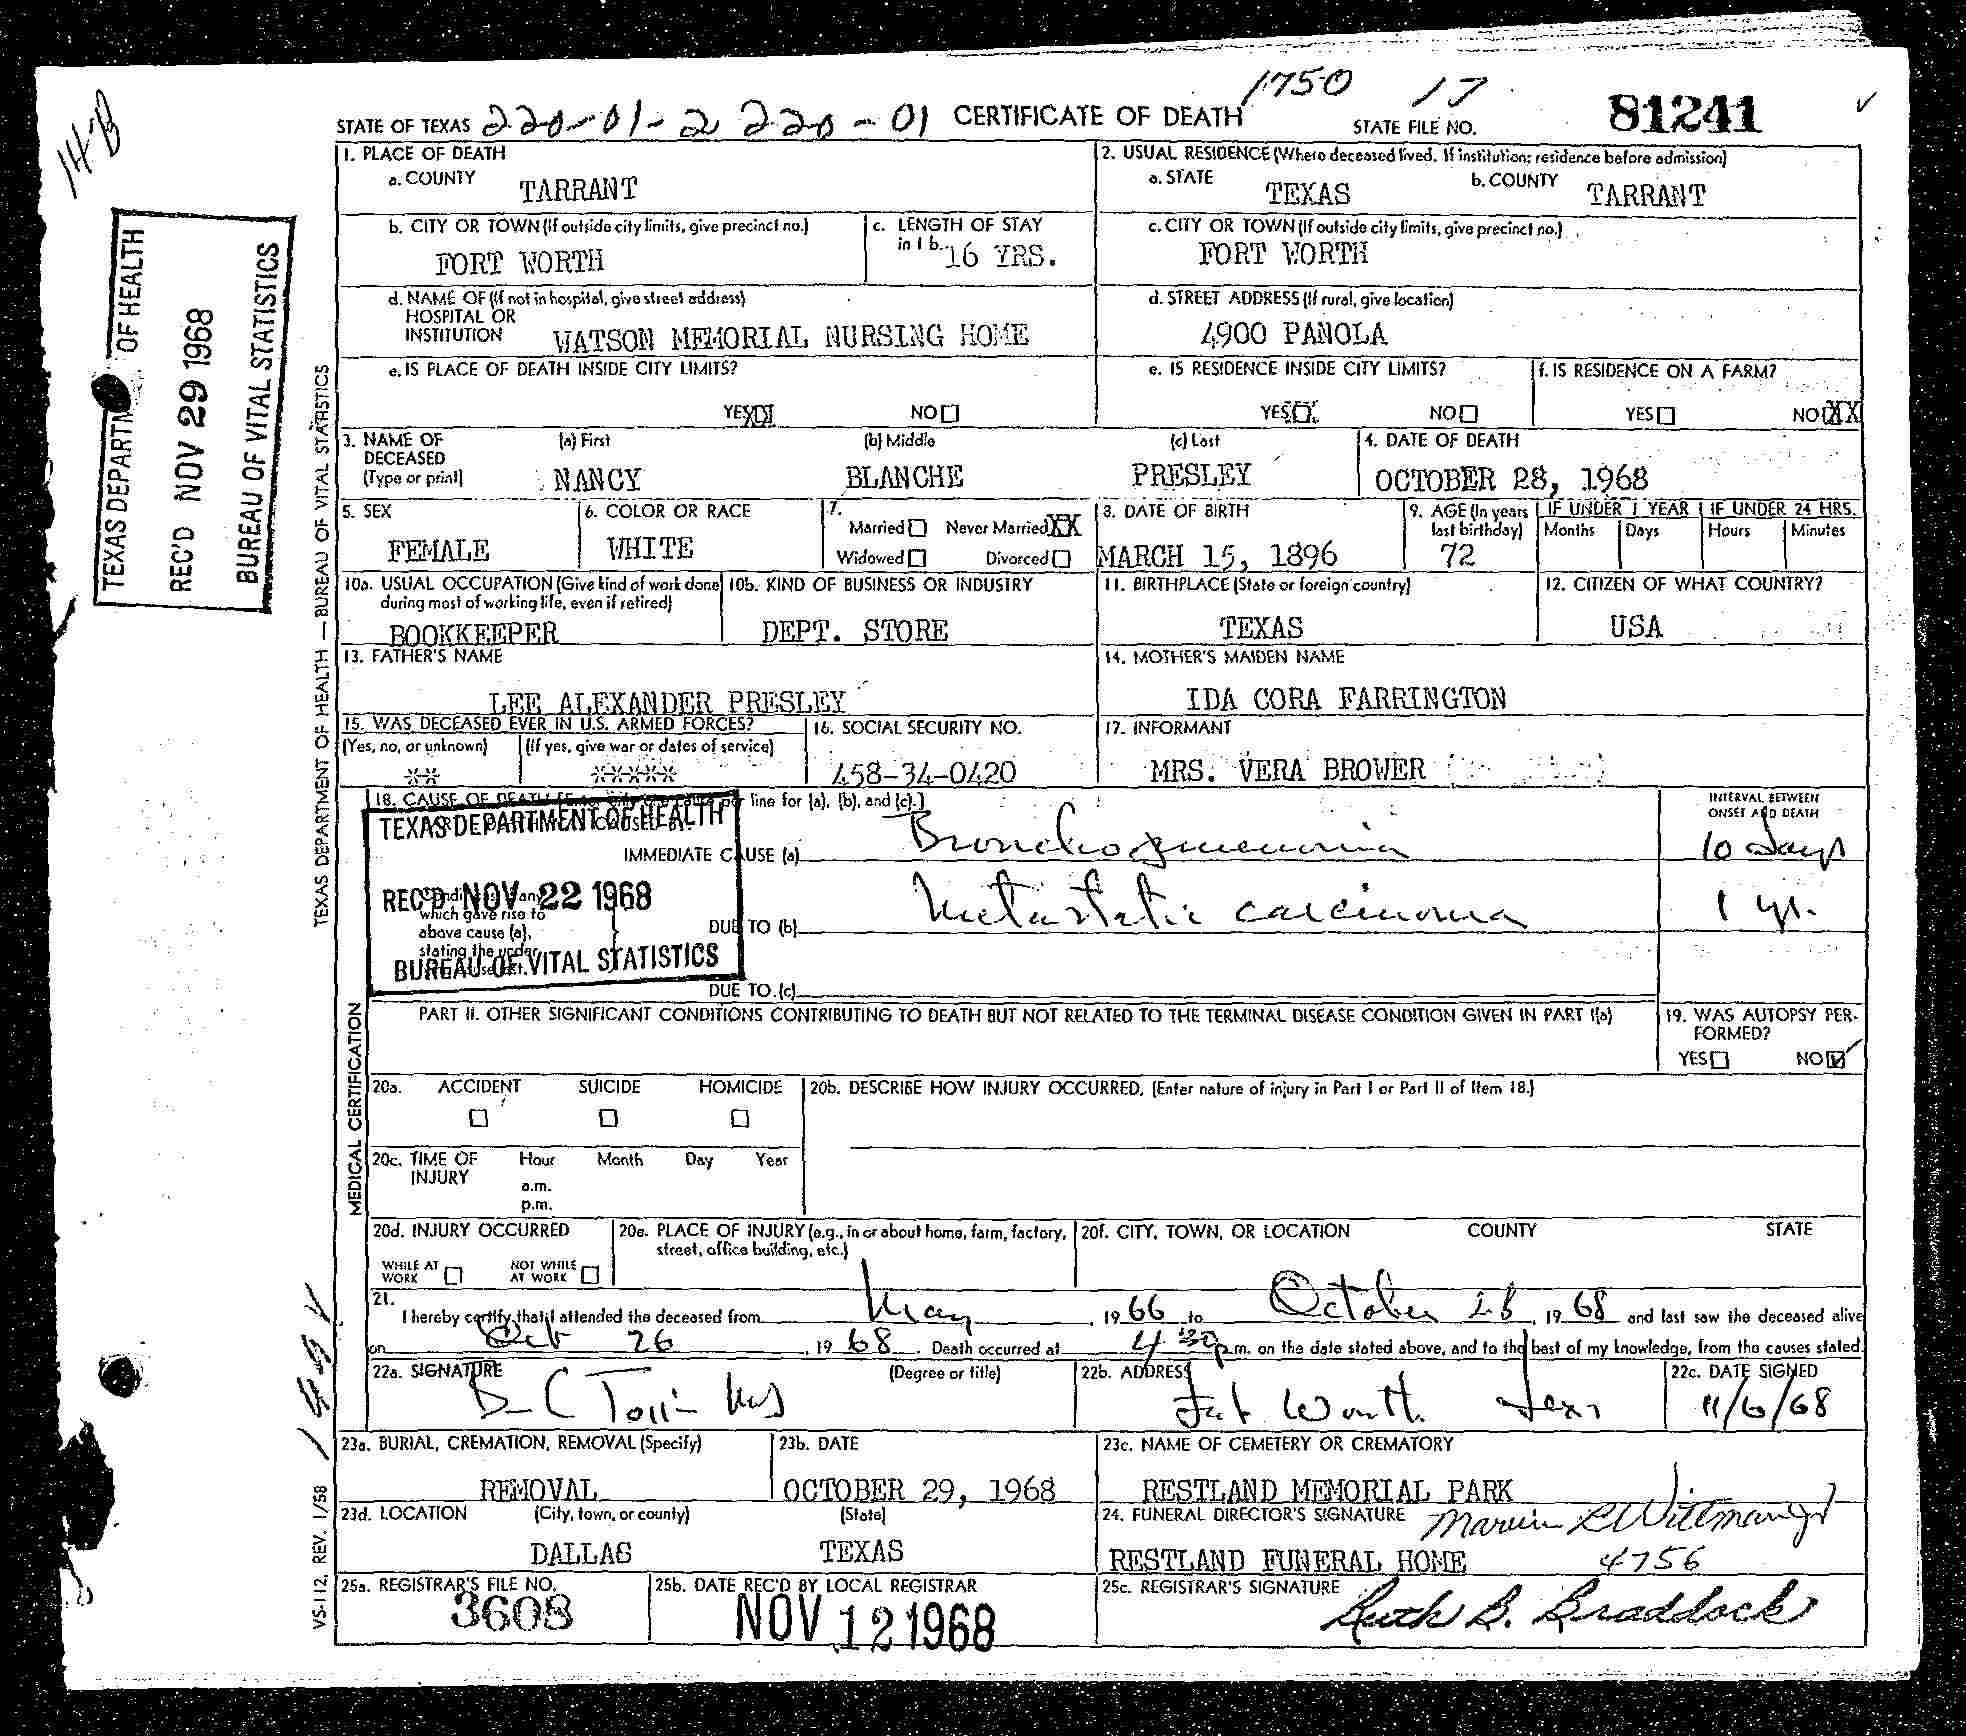 1750 17
STATE OF TEXAS 220-01-2 220-01 CERTIFICATE OF DEATH STATE FILE NO. 81241
14B
TEXAS DEPARTM OF HEALTH
REC'D NOV 29 1968
BUREAU OF VITAL STATISTICS
TEXAS DEPARTMENT OF HEALTH — BUREAU OF VITAL STATISTICS
1. PLACE OF DEATH
a. COUNTY TARRANT
2. USUAL RESIDENCE (Where deceased lived. If institution: residence before admission)
a. STATE TEXAS b. COUNTY TARRANT
b. CITY OR TOWN (If outside city limits, give precinct no.) FORT WORTH
c. LENGTH OF STAY in 1 b. 16 YRS.
c. CITY OR TOWN (If outside city limits, give precinct no.) FORT WORTH
d. NAME OF (If not in hospital, give street address) HOSPITAL OR INSTITUTION WATSON MEMORIAL NURSING HOME
d. STREET ADDRESS (If rural, give location) 4900 PANOLA
e. IS PLACE OF DEATH INSIDE CITY LIMITS? YES XX NO
e. IS RESIDENCE INSIDE CITY LIMITS? YES NO
f. IS RESIDENCE ON A FARM? YES NO XX
3. NAME OF DECEASED (Type or print) (a) First NANCY (b) Middle BLANCHE (c) Last PRESLEY
4. DATE OF DEATH OCTOBER 28, 1968
5. SEX FEMALE
6. COLOR OR RACE WHITE
7. Married Never Married XX
Widowed Divorced
8. DATE OF BIRTH MARCH 15, 1896
9. AGE (In years last birthday) 72
IF UNDER 1 YEAR Months Days
IF UNDER 24 HRS. Hours Minutes
10a. USUAL OCCUPATION (Give kind of work done during most of working life, even if retired) BOOKKEEPER
10b. KIND OF BUSINESS OR INDUSTRY DEPT. STORE
11. BIRTHPLACE (State or foreign country) TEXAS
12. CITIZEN OF WHAT COUNTRY? USA
13. FATHER'S NAME LEE ALEXANDER PRESLEY
14. MOTHER'S MAIDEN NAME IDA CORA FARRINGTON
15. WAS DECEASED EVER IN U.S. ARMED FORCES?
(Yes, no, or unknown) ** (If yes, give war or dates of service) *****
16. SOCIAL SECURITY NO. 458-34-0420
17. INFORMANT MRS. VERA BROWER
18. CAUSE OF DEATH line for (a), (b), and (c).]
INTERVAL BETWEEN ONSET AND DEATH
TEXAS DEPARTMENT OF HEALTH
REC'D NOV 22 1968
BUREAU OF VITAL STATISTICS
IMMEDIATE CAUSE (a) Bronchopneumonia 10 days
which gave rise to above cause (a), stating the under
DUE TO (b) Metastatic carcinoma 1 yr.
DUE TO (c)
MEDICAL CERTIFICATION
PART II. OTHER SIGNIFICANT CONDITIONS CONTRIBUTING TO DEATH BUT NOT RELATED TO THE TERMINAL DISEASE CONDITION GIVEN IN PART I(a)
19. WAS AUTOPSY PERFORMED? YES NO
20a. ACCIDENT SUICIDE HOMICIDE
20b. DESCRIBE HOW INJURY OCCURRED. (Enter nature of injury in Part I or Part II of Item 18.)
20c. TIME OF INJURY Hour Month Day Year
a.m.
p.m.
20d. INJURY OCCURRED
WHILE AT WORK NOT WHILE AT WORK
20e. PLACE OF INJURY (e.g., in or about home, farm, factory, street, office building, etc.)
20f. CITY, TOWN, OR LOCATION COUNTY STATE
21. I hereby certify that I attended the deceased from May 1966 to October 28, 1968 and last saw the deceased alive
on Oct 26, 1968. Death occurred at 4:30 p.m. on the date stated above, and to the best of my knowledge, from the causes stated.
22a. SIGNATURE (Degree or title)
22b. ADDRESS Fort Worth Texas
22c. DATE SIGNED 11/6/68
23a. BURIAL, CREMATION, REMOVAL (Specify) REMOVAL
23b. DATE OCTOBER 29, 1968
23c. NAME OF CEMETERY OR CREMATORY RESTLAND MEMORIAL PARK
23d. LOCATION (City, town, or county) DALLAS (State) TEXAS
24. FUNERAL DIRECTOR'S SIGNATURE Marvin R Wittman Jr
RESTLAND FUNERAL HOME 4756
25a. REGISTRAR'S FILE NO. 3608
25b. DATE REC'D BY LOCAL REGISTRAR NOV 12 1968
25c. REGISTRAR'S SIGNATURE Ruth B. Braddock
VS-112, REV. 1/58